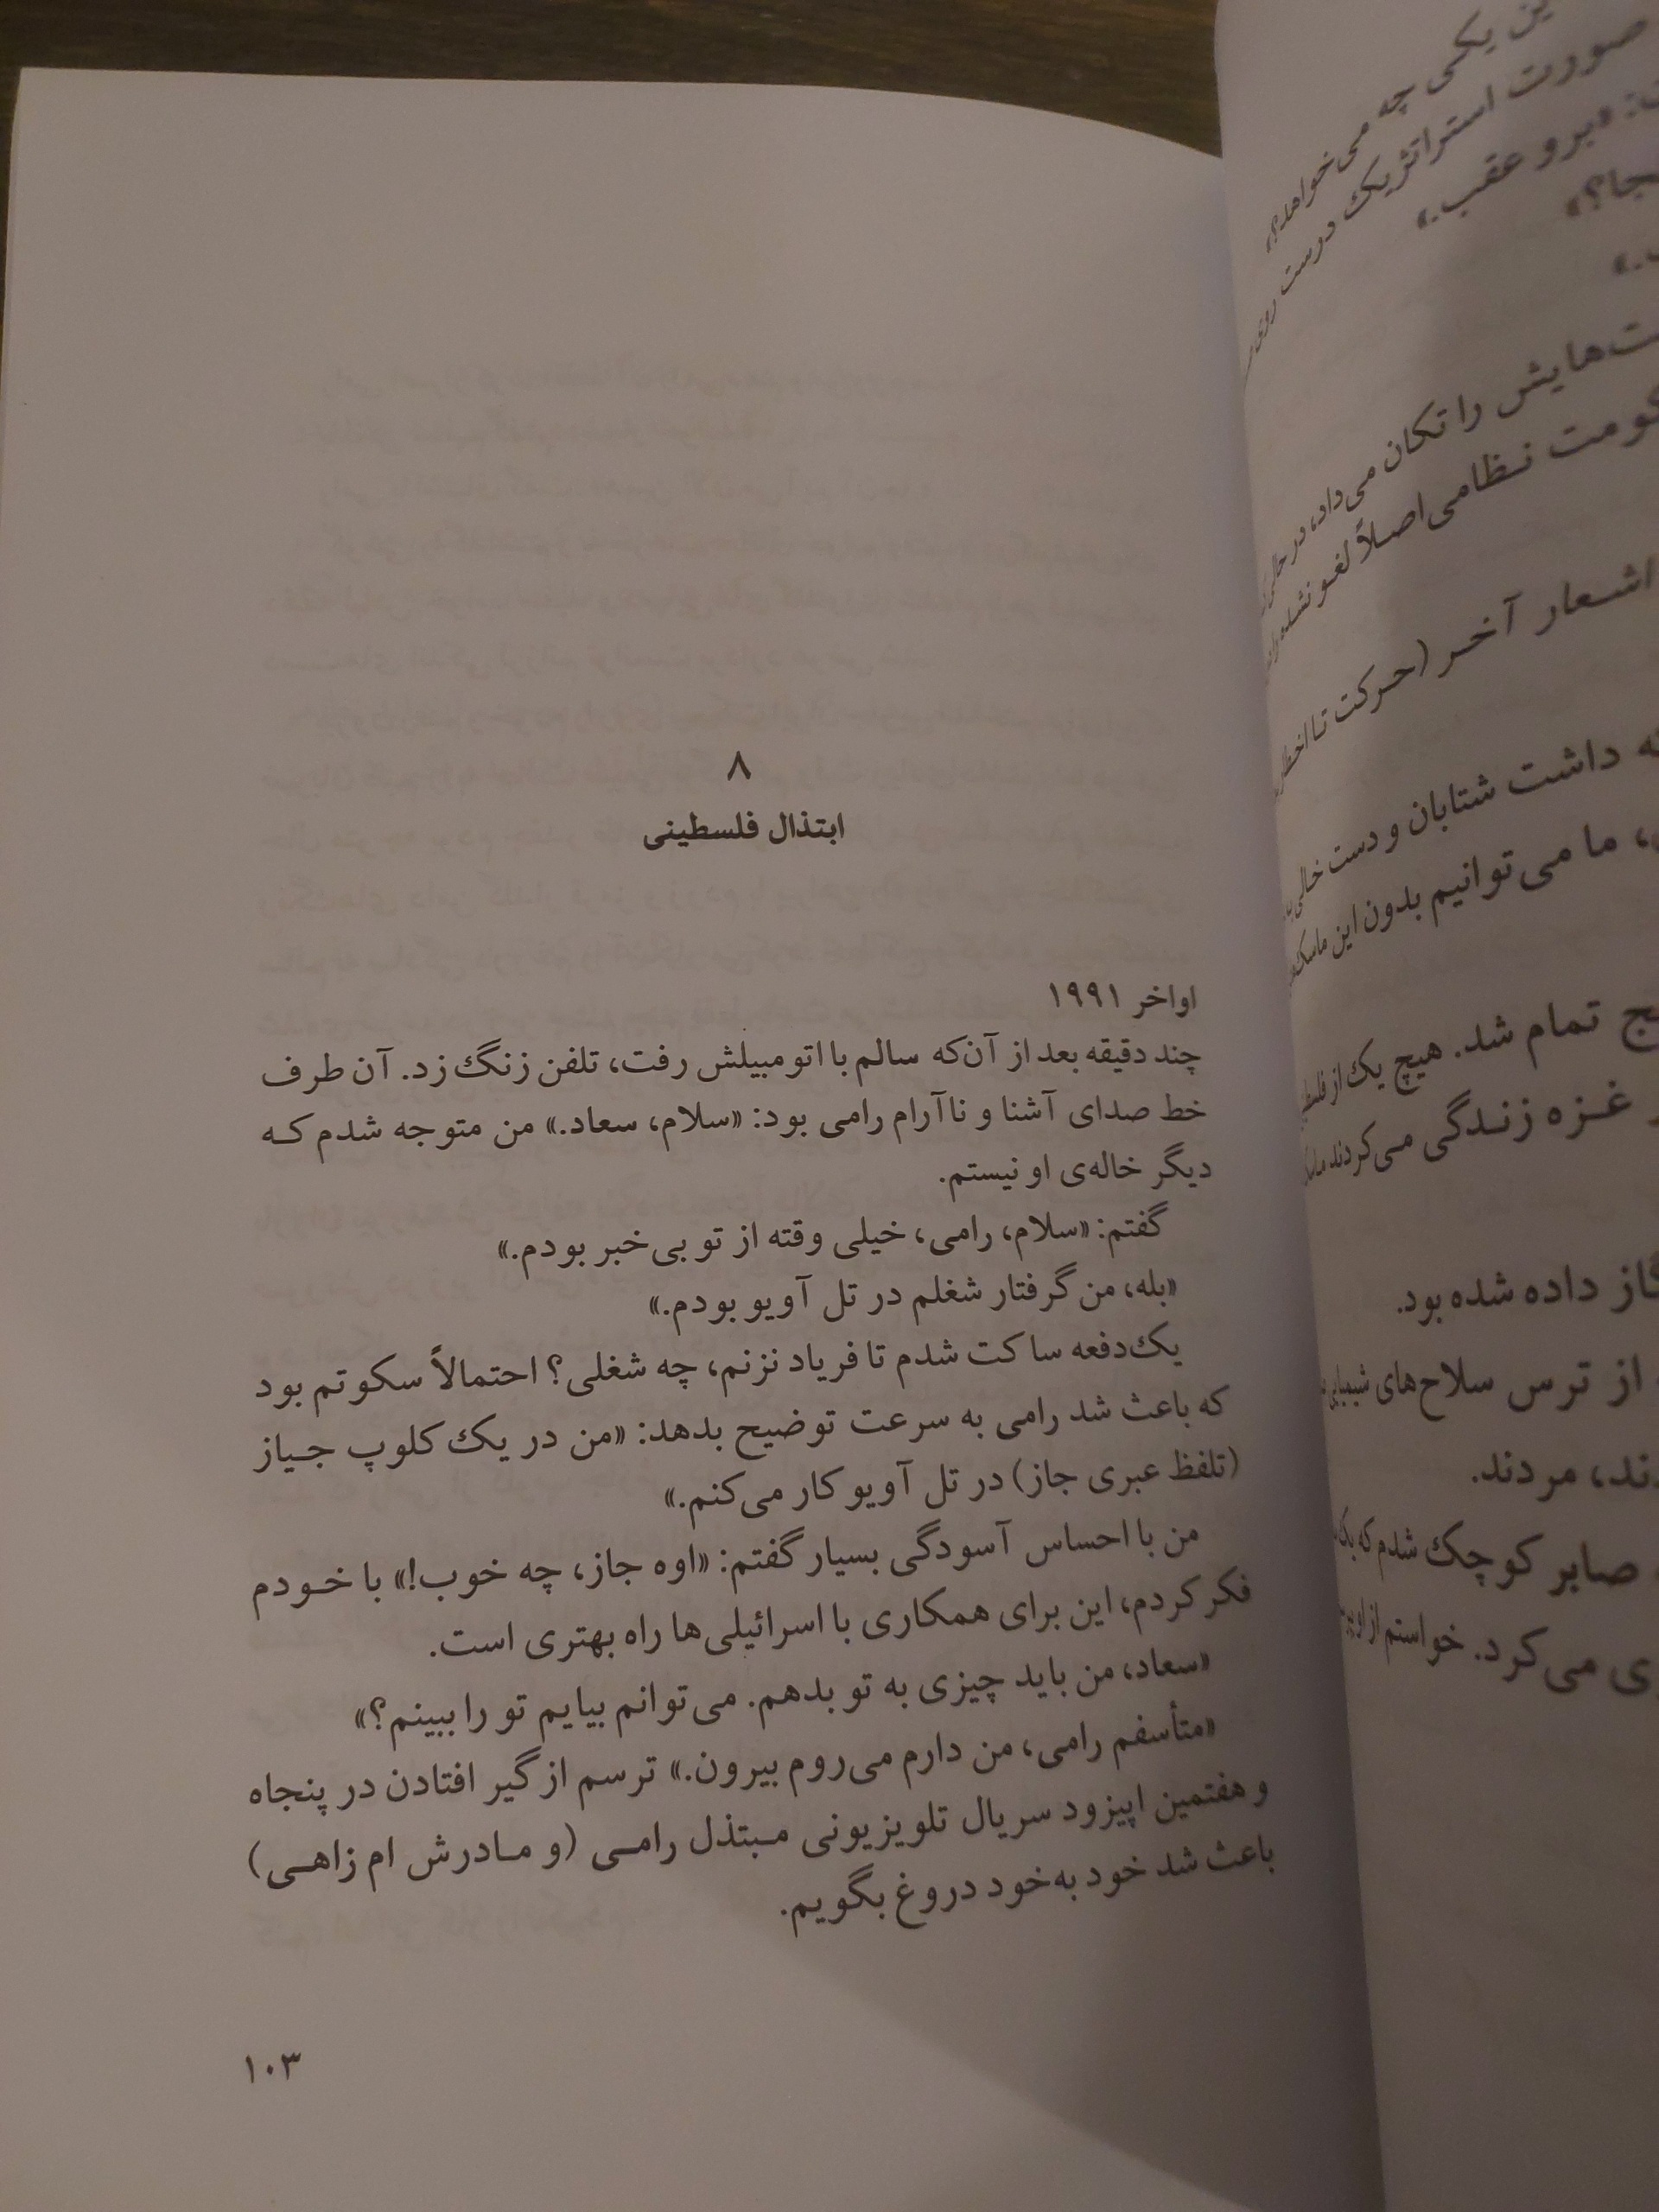 ین یکی چه می‌خواهد؟»
صورت استراتژیک درست روی
«برو عقب.»
ت‌هایش را تکان می‌داد، در حالی
کومت نظامی اصلاً لغو نشده
اشعار آخر (حرکت تا
داشت شتابان و دست خالی
ما می‌توانیم بدون این ماسک
تمام شد. هیچ یک از
غزه زندگی می‌کردند
گاز داده شده بود.
از ترس سلاح‌های شیمیایی
ند، مردند.
صابر کوچک شدم که یک
ی می‌کرد. خواستم از او
۸
ابتذال فلسطینی
اواخر ۱۹۹۱
چند دقیقه بعد از آن‌که سالم با اتومبیلش رفت، تلفن زنگ زد. آن طرف
خط صدای آشنا و ناآرام رامی بود: «سلام، سعاد.» من متوجه شدم که
دیگر خاله‌ی او نیستم.
گفتم: «سلام، رامی، خیلی وقته از تو بی‌خبر بودم.»
«بله، من گرفتار شغلم در تل آویو بودم.»
یک‌دفعه ساکت شدم تا فریاد نزنم، چه شغلی؟ احتمالاً سکوتم بود
که باعث شد رامی به سرعت توضیح بدهد: «من در یک کلوپ جیاز
(تلفظ عبری جاز) در تل آویو کار می‌کنم.»
من با احساس آسودگی بسیار گفتم: «اوه جاز، چه خوب!» با خودم
فکر کردم، این برای همکاری با اسرائیلی‌ها راه بهتری است.
«سعاد، من باید چیزی به تو بدهم. می‌توانم بیایم تو را ببینم؟»
«متأسفم رامی، من دارم می‌روم بیرون.» ترسم از گیر افتادن در پنجاه
و هفتمین اپیزود سریال تلویزیونی مبتذل رامی (و مادرش ام زاهی)
باعث شد خود به‌خود دروغ بگویم.
۱۰۳